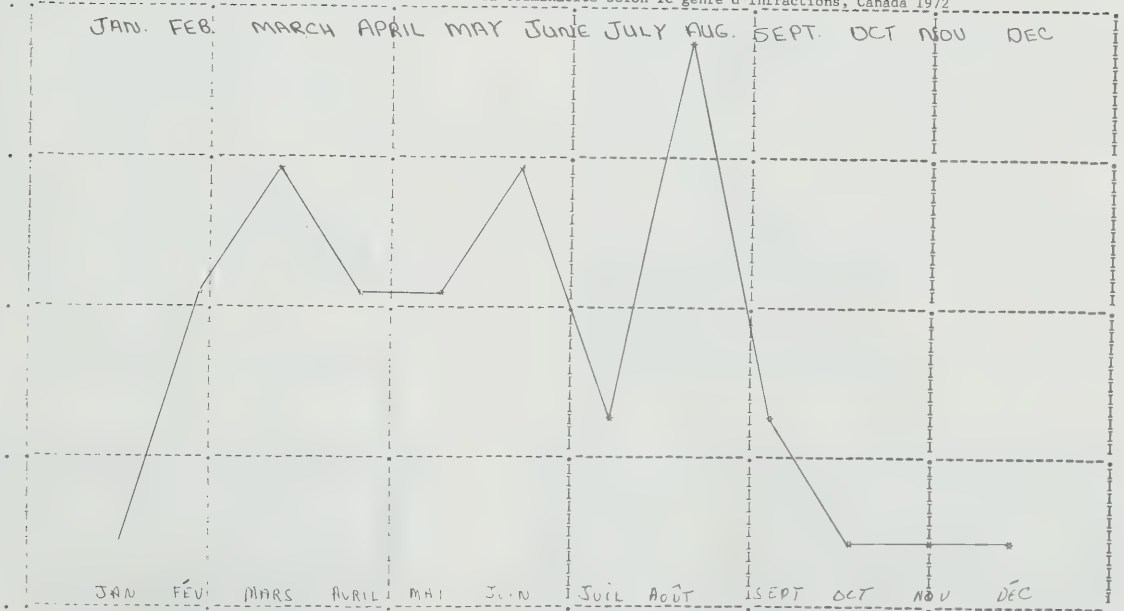 selon le genre d'infractions, Canada 1972
JAN. FEB. MARCH APRIL MAY JUNE JULY AUG. SEPT. OCT NOV DEC
JAN FÉV MARS AVRIL MAI JUIN JUIL AOÛT SEPT OCT NOV DÉC